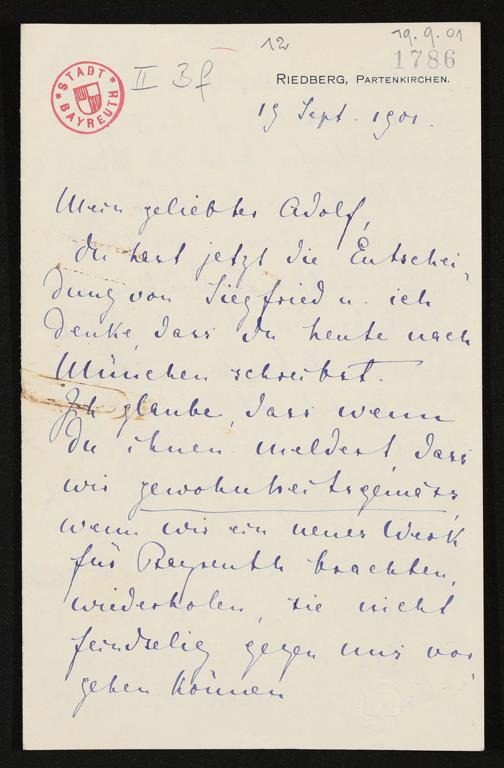 12
19.9.01
1786
STADT BAYREUTH
II Bf
RIEDBERG, PARTENKIRCHEN.
19 Sept. 1901.
Mein geliebter Adolf,
du hast jetzt die Entschei-
dung von Siegfried u. ich
denke, dass du heute nach
München schreibst.
Ich glaube, dass wenn
du ihnen meldest, dass
wir gewohnheitsgemäss,
wenn wir ein neues Werk
für Bayreuth brachten,
wiederholen, sie nicht
feindselig gegen uns vor,
gehen können